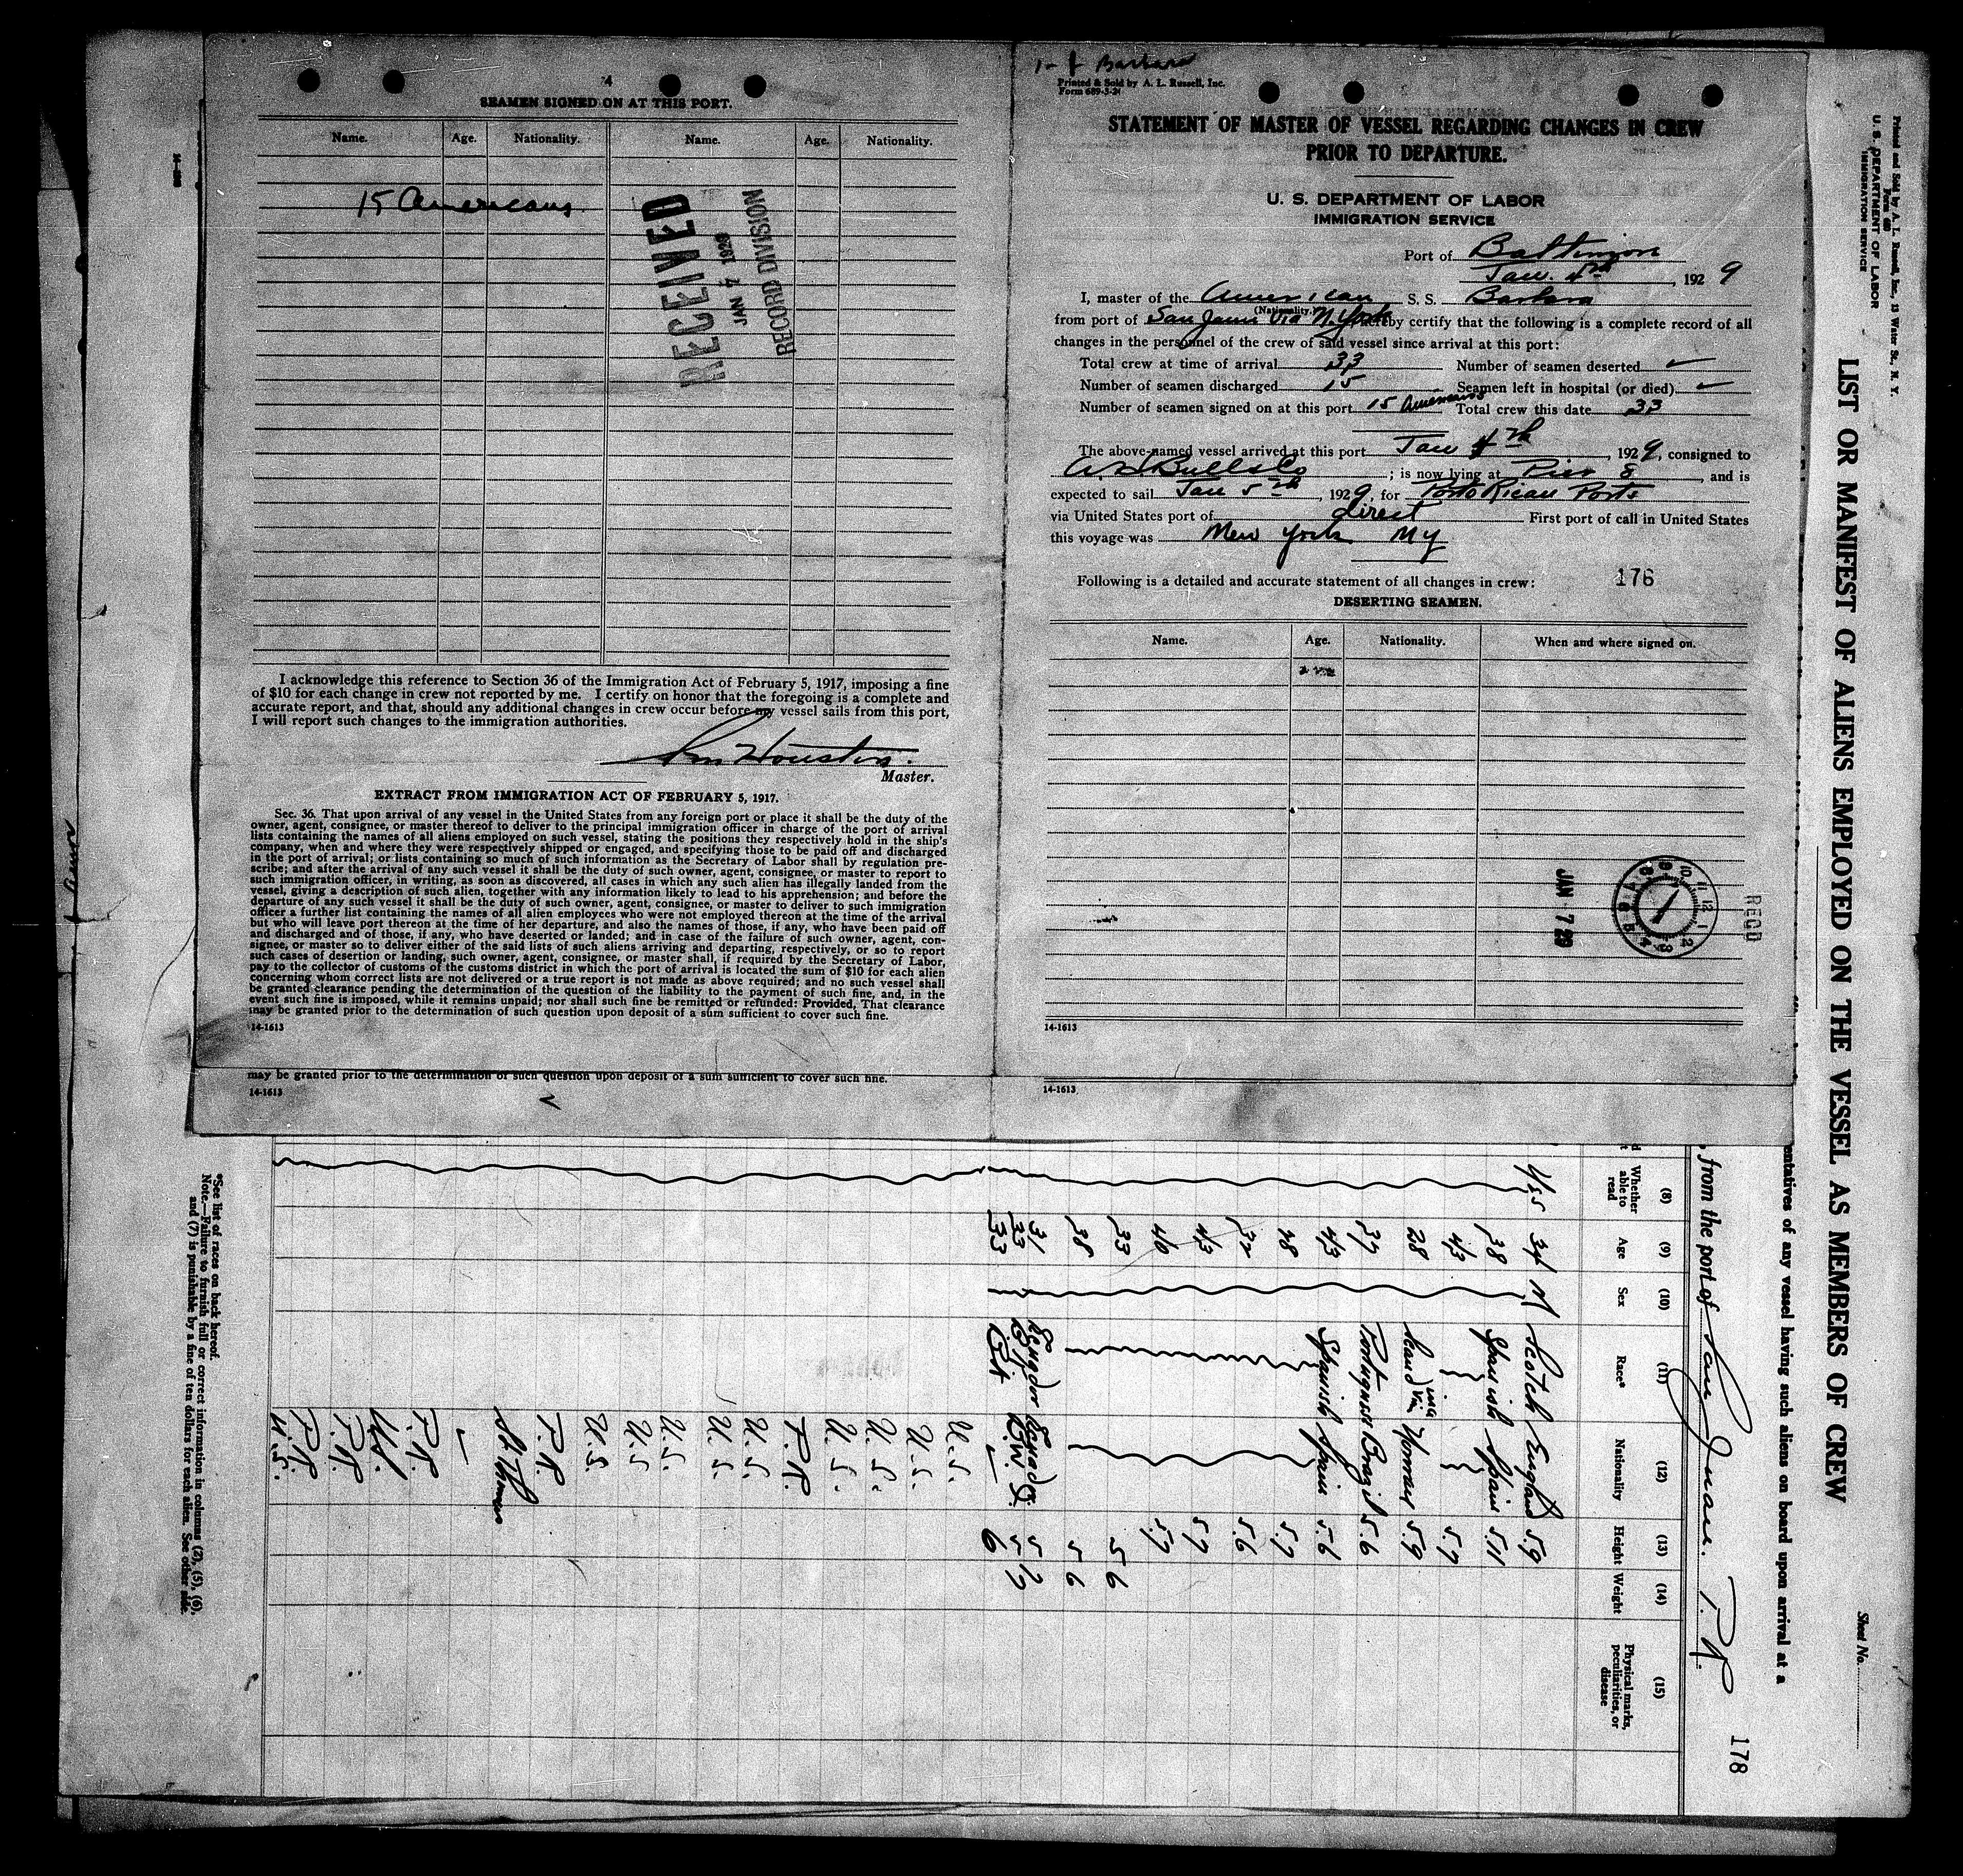 4
SEAMEN SIGNED ON AT THIS PORT.
Name. Age. Nationality. Name. Age. Nationality.
15 Americans
RECEIVED
JAN 7 1929
RECORD DIVISION
I acknowledge this reference to Section 36 of the Immigration Act of February 5, 1917, imposing a fine
of $10 for each change in crew not reported by me. I certify on honor that the foregoing is a complete and
accurate report, and that, should any additional changes in crew occur before my vessel sails from this port,
I will report such changes to the immigration authorities.
Houston.
Master.
EXTRACT FROM IMMIGRATION ACT OF FEBRUARY 5, 1917.
Sec. 36. That upon arrival of any vessel in the United States from any foreign port or place it shall be the duty of the
owner, agent, consignee, or master thereof to deliver to the principal immigration officer in charge of the port of arrival
lists containing the names of all aliens employed on such vessel, stating the positions they respectively hold in the ship's
company, when and where they were respectively shipped or engaged, and specifying those to be paid off and discharged
in the port of arrival; or lists containing so much of such information as the Secretary of Labor shall by regulation pre-
scribe; and after the arrival of any such vessel it shall be the duty of such owner, agent, consignee, or master to report to
such immigration officer, in writing, as soon as discovered, all cases in which any such alien has illegally landed from the
vessel, giving a description of such alien, together with any information likely to lead to his apprehension; and before the
departure of any such vessel it shall be the duty of such owner, agent, consignee, or master to deliver to such immigration
officer a further list containing the names of all alien employees who were not employed thereon at the time of the arrival
but who will leave port thereon at the time of her departure, and also the names of those, if any, who have been paid off
and discharged and of those, if any, who have deserted or landed; and in case of the failure of such owner, agent, con-
signee, or master so to deliver either of the said lists of such aliens arriving and departing, respectively, or so to report
such cases of desertion or landing, such owner, agent, consignee, or master shall, if required by the Secretary of Labor,
pay to the collector of customs of the customs district in which the port of arrival is located the sum of $10 for each alien
concerning whom correct lists are not delivered or a true report is not made as above required; and no such vessel shall
be granted clearance pending the determination of the question of the liability to the payment of such fine, and, in the
event such fine is imposed, while it remains unpaid; nor shall such fine be remitted or refunded: Provided, That clearance
may be granted prior to the determination of such question upon deposit of a sum sufficient to cover such fine.
14-1613
may be granted prior to the determination of such question upon deposit of a sum sufficient to cover such fine.
14-1613
Barbara
Printed & Sold by A. L. Russell, Inc.
Form 689-5-24
STATEMENT OF MASTER OF VESSEL REGARDING CHANGES IN CREW
PRIOR TO DEPARTURE.
U. S. DEPARTMENT OF LABOR
IMMIGRATION SERVICE
Port of Baltimore
Jan. 4th, 1929
I, master of the American S. S. Barbara
(Nationality.)
from port of San Juan via N. York hereby certify that the following is a complete record of all
changes in the personnel of the crew of said vessel since arrival at this port:
Total crew at time of arrival 33 Number of seamen deserted ✓
Number of seamen discharged 15 Seamen left in hospital (or died) ✓
Number of seamen signed on at this port 15 Americans Total crew this date 33
The above-named vessel arrived at this port Jan 4th, 1929, consigned to
A. H. Bull & Co; is now lying at Pier 8, and is
expected to sail Jan 5th, 1929, for Porto Rican Ports
via United States port of direct First port of call in United States
this voyage was New York NY
Following is a detailed and accurate statement of all changes in crew: 176
DESERTING SEAMEN.
Name. Age. Nationality. When and where signed on.
REC'D
JAN 7 29
14-1613
14-1613
Printed and Sold by A. L. Russell, Inc., 13 Water St., N. Y.
U. S. DEPARTMENT OF LABOR
IMMIGRATION SERVICE
LIST OR MANIFEST OF ALIENS EMPLOYED ON THE VESSEL AS MEMBERS OF CREW
Sheet No.
entatives of any vessel having such aliens on board upon arrival at a
, from the port of San Juan. P.R. 178
(8) (9) (10) (11) (12) (13) (14) (15)
Whether able to read Age Sex Race* Nationality Height Weight Physical marks, peculiarities, or disease
Yes 34 M Scotch England 5.9
38 Spanish Spain 5.11
43 5.7
28 Scandinavian Norway 5.9
37 Portuguese Brazil 5.6
43 Spanish Spain 5.6
28 5.7
32 5.6
43 5.7
40 5.7
33 5 6
38 5 6
31 Ecuador Ecuador 5 7
33 B.W.I.
33 6
U.S.
U.S.
U.S.
U.S.
P.R.
U.S.
U.S.
U.S.
U.S.
U.S.
P.R.
St. Thomas
P.R.
U.S.
P.R.
P.R.
U.S.
*See list of races on back hereof.
Note.—Failure to furnish full or correct information in columns (2), (5), (6),
and (7) is punishable by a fine of ten dollars for each alien. See other side.